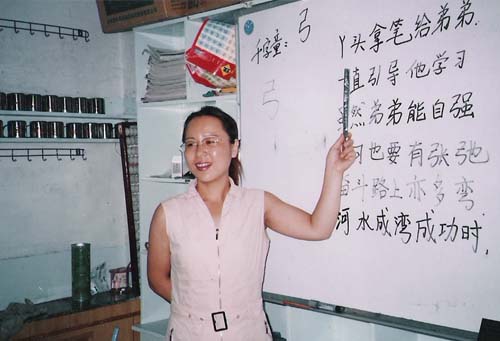 千字童: 弓
弓
丫头拿笔给弟弟.
一直引导他学习
然弟弟能自强
习也要有张弛
奋斗路上亦多弯
河水成湾成功时.